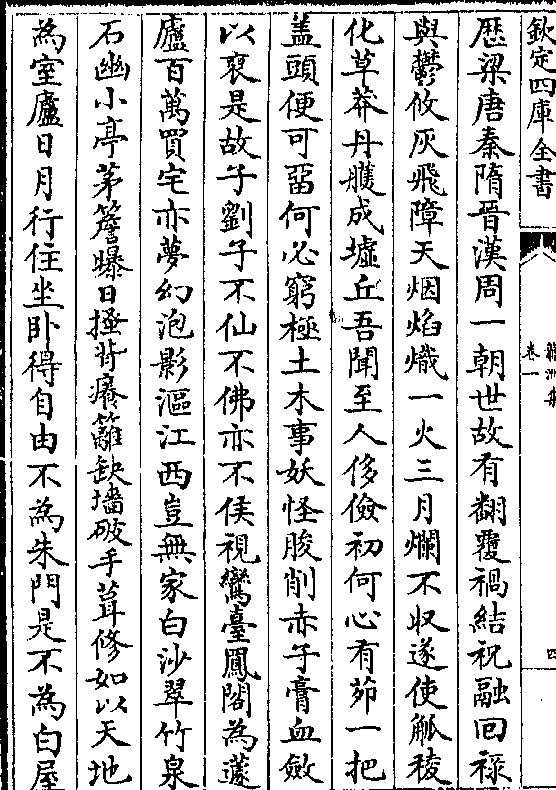 欽定四庫全書
龍洲集
卷一
四
歴梁唐秦隋晉漢周一朝世故有翻覆禍結祝融回祿
與鬱攸灰飛障天烟焰熾一火三月爛不收遂使觚稜
化草莽丹雘成墟丘吾聞至人侈儉初何心有茆一把
蓋頭便可畱何必窮極土木事妖怪朘削赤子膏血斂
以裒是故子劉子不仙不佛亦不侯視鸞臺鳳閣為蘧
廬百萬買宅亦夢幻泡影漚江西豈無家白沙翠竹泉
石幽小亭茅簷曝日搔背癢籬缺墻破手葺修如以天地
為室廬日月行住坐卧得自由不為朱門是不為白屋